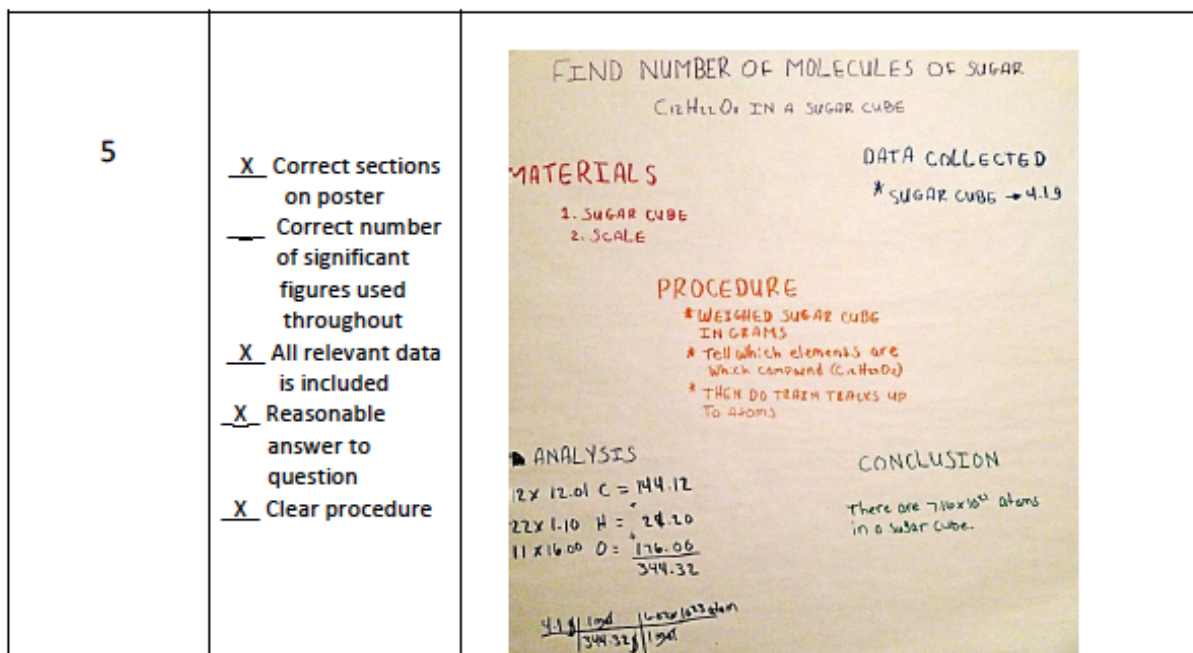 5
X Correct sections
on poster
___ Correct number
of significant
figures used
throughout
X All relevant data
is included
X Reasonable
answer to
question
X Clear procedure
FIND NUMBER OF MOLECULES OF SUGAR
IN A SUGAR CUBE
MATERIALS
1. SUGAR CUBE
2. SCALE
DATA COLLECTED
* SUGAR CUBE → 4.1g
PROCEDURE
* WEIGHED SUGAR CUBE
IN GRAMS
* Tell which elements are
which compound
* THEN DO TRAIN TRACKS UP
TO ATOMS
ANALYSIS
12 x 12.01 C = 144.12
+
22 x 1.10 H = 24.20
+
11 x 16.00 O = 176.00
344.32
4.1 g | 1 mol | 6.02x10²³ atom
344.32 g | 1 mol
CONCLUSION
There are 7.16x10²¹ atoms
in a sugar cube.